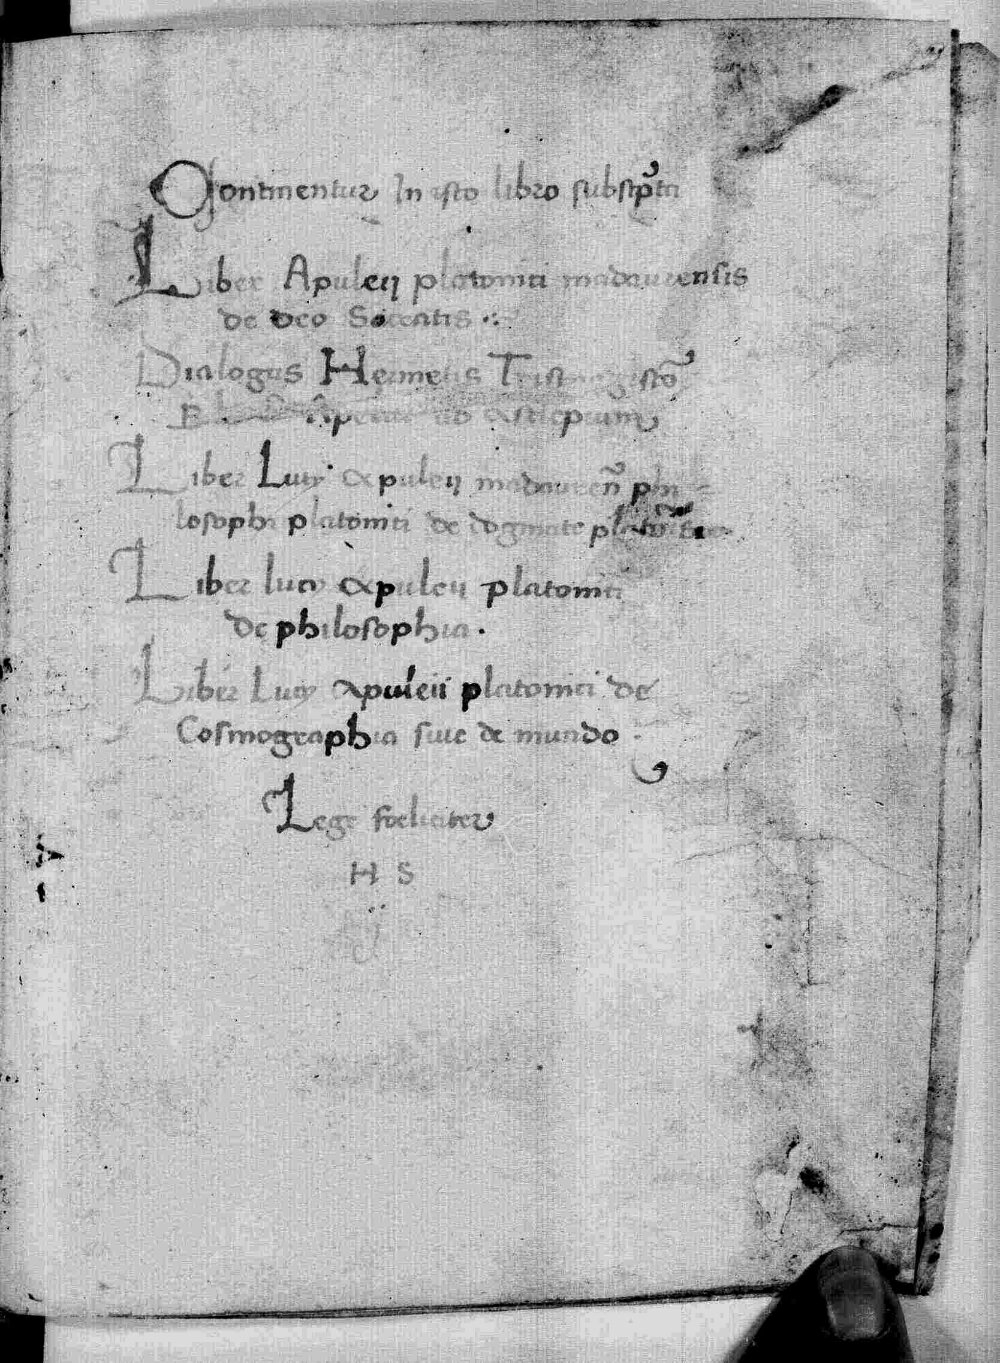 Continentur In isto libro subscp̃ta
Liber Apuleij platonici madaurensis
de deo Socratis
Dialogus Hermetis Trismegistõ
ad asclepium
Liber Lucij Apuleij madaureñ phi=
losophi platonici de dogmate
Liber lucij Apuleij platonici
de philosophia.
Liber Lucij Apuleii platonici de
Cosmographia siue de mundo
Lege foeliciter
H S